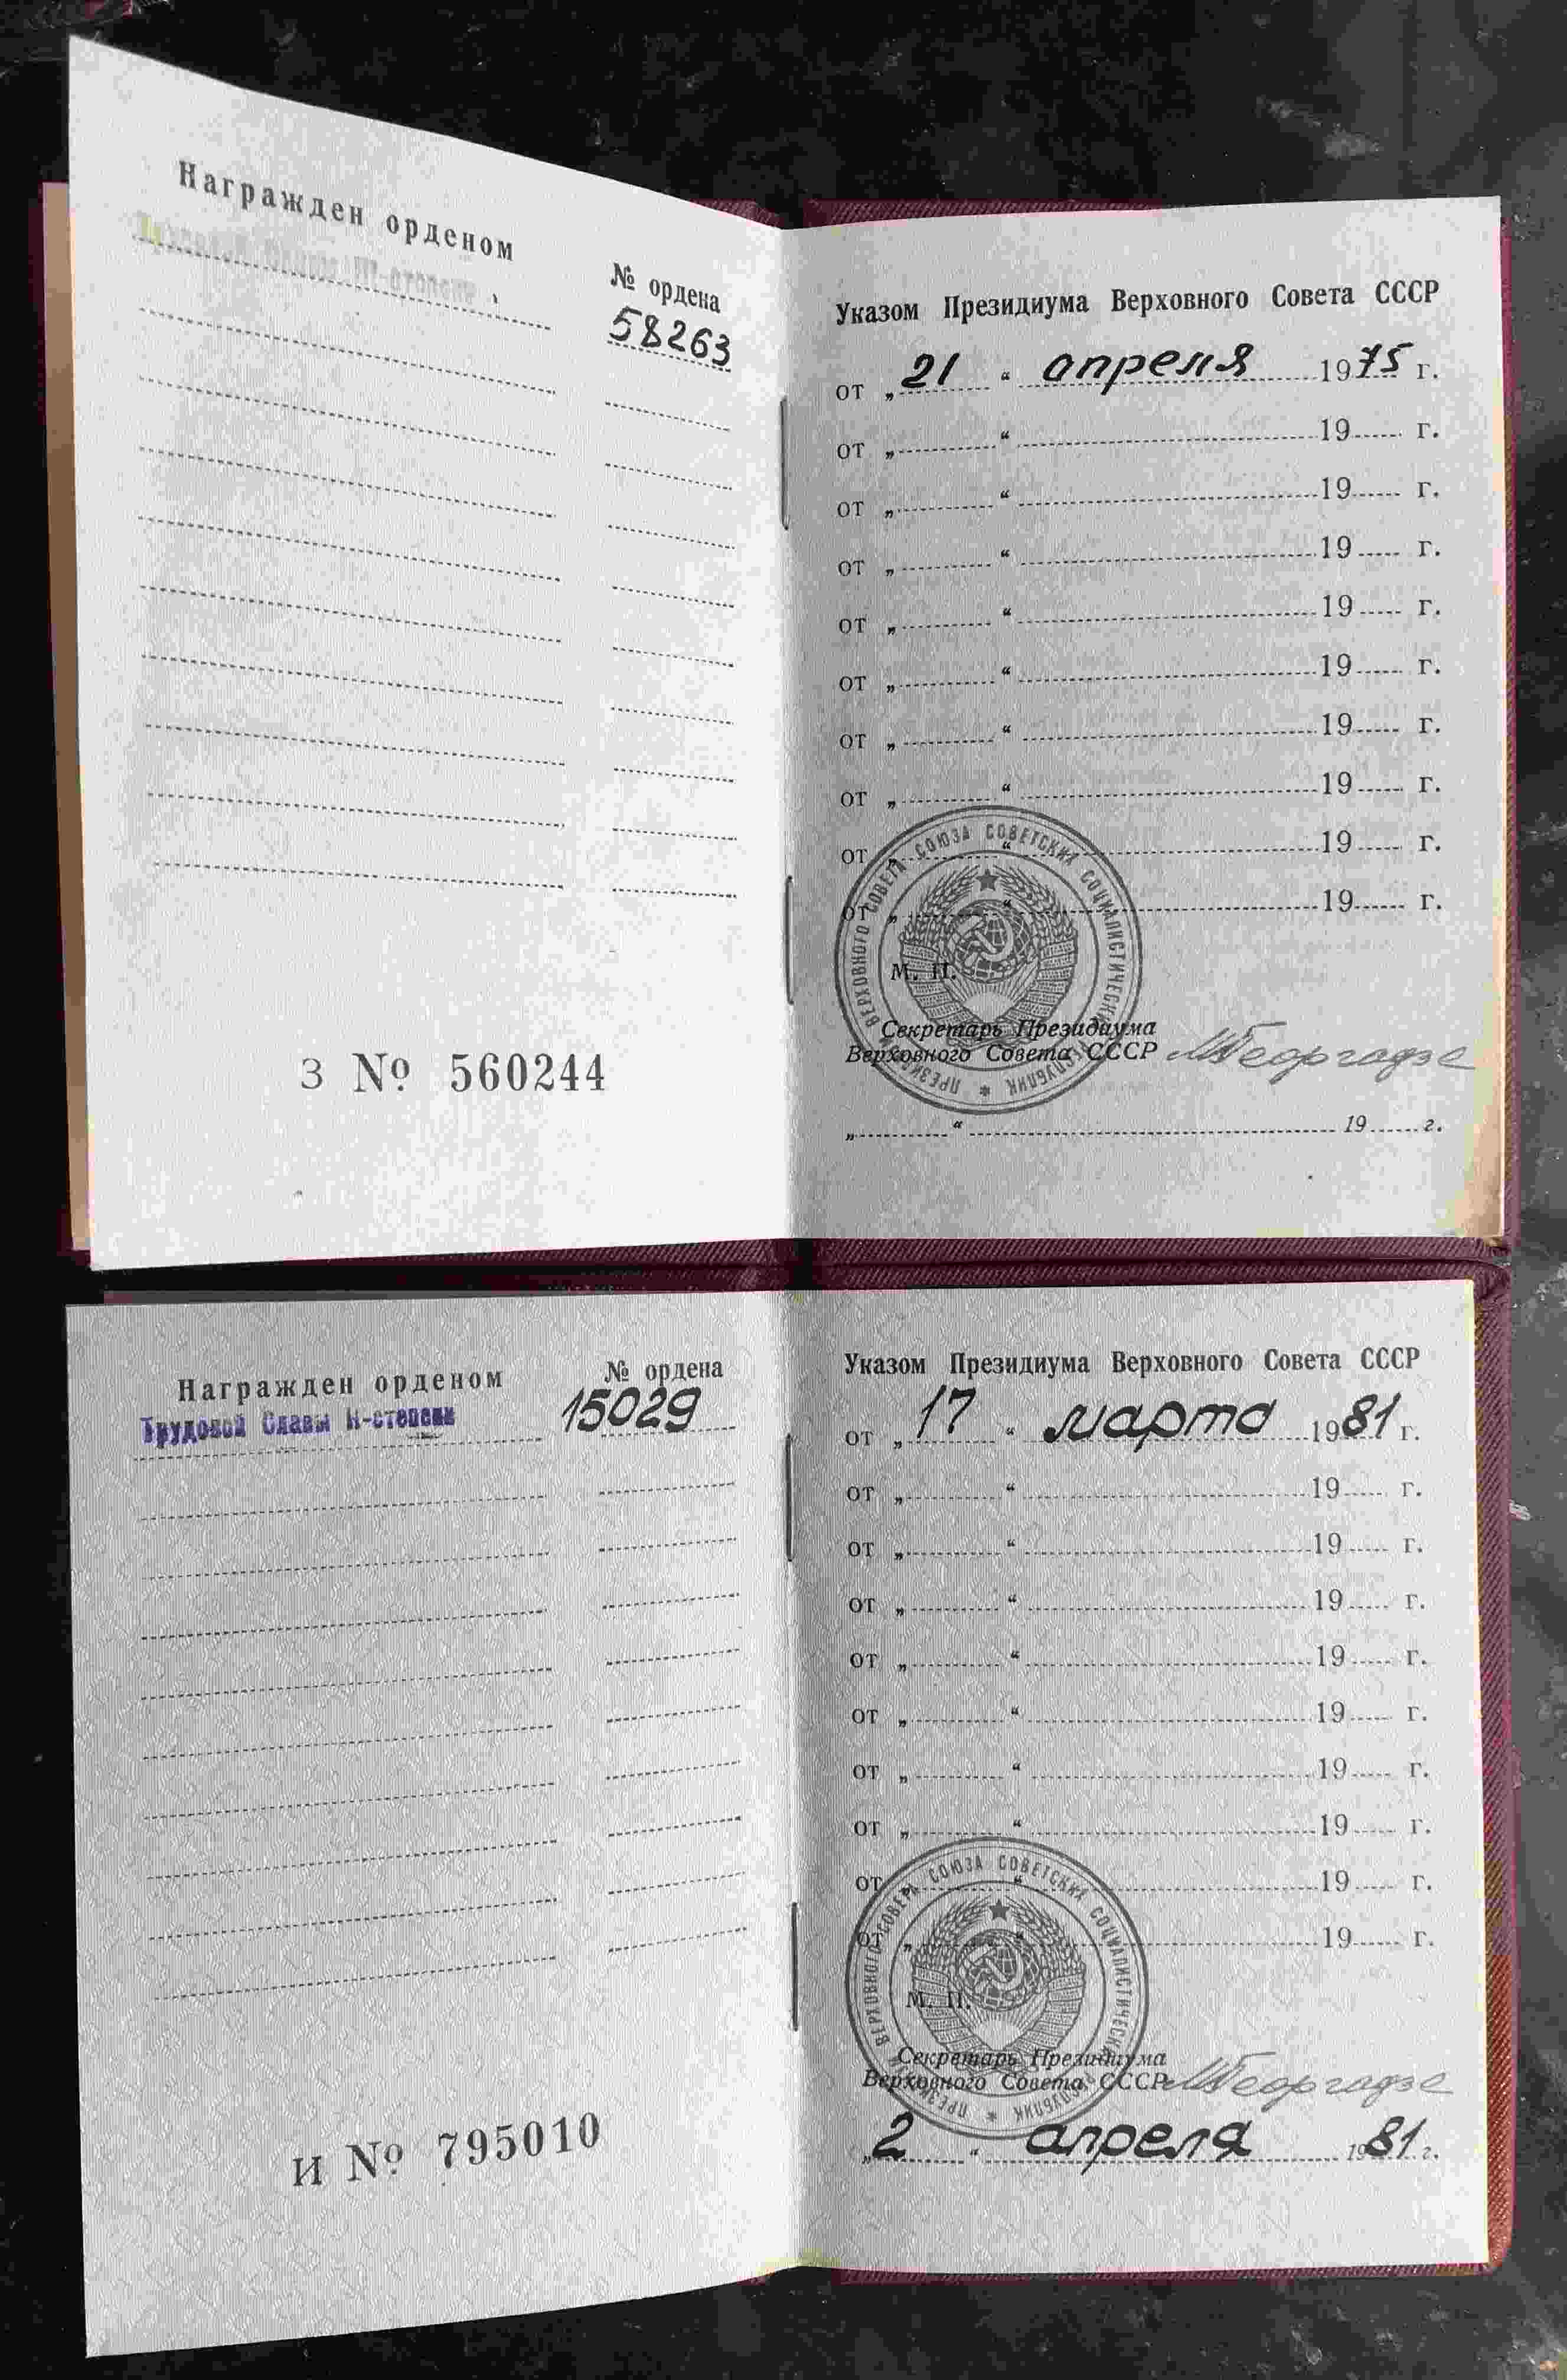 Награжден орденом
Трудовой Славы III-степени
№ ордена
58263
З № 560244
Указом Президиума Верховного Совета СССР
от „21“ апреля 1975 г.
от „ “ 19 г.
от „ “ 19 г.
от „ “ 19 г.
от „ “ 19 г.
от „ “ 19 г.
от „ “ 19 г.
от „ “ 19 г.
от „ “ 19 г.
от „ “ 19 г.
ПРЕЗИДИУМ ВЕРХОВНОГО СОВЕТА СОЮЗА СОВЕТСКИХ СОЦИАЛИСТИЧЕСКИХ РЕСПУБЛИК
М. П.
Секретарь Президиума
Верховного Совета СССР МГеоргадзе
„ “ 19 г.
Награжден орденом
Трудовой Славы II-степени
№ ордена
15029
И № 795010
Указом Президиума Верховного Совета СССР
от „17“ марта 1981 г.
от „ “ 19 г.
от „ “ 19 г.
от „ “ 19 г.
от „ “ 19 г.
от „ “ 19 г.
от „ “ 19 г.
от „ “ 19 г.
от „ “ 19 г.
от „ “ 19 г.
ПРЕЗИДИУМ ВЕРХОВНОГО СОВЕТА СОЮЗА СОВЕТСКИХ СОЦИАЛИСТИЧЕСКИХ РЕСПУБЛИК
М. П.
Секретарь Президиума
Верховного Совета СССР МГеоргадзе
„2“ апреля 1981 г.